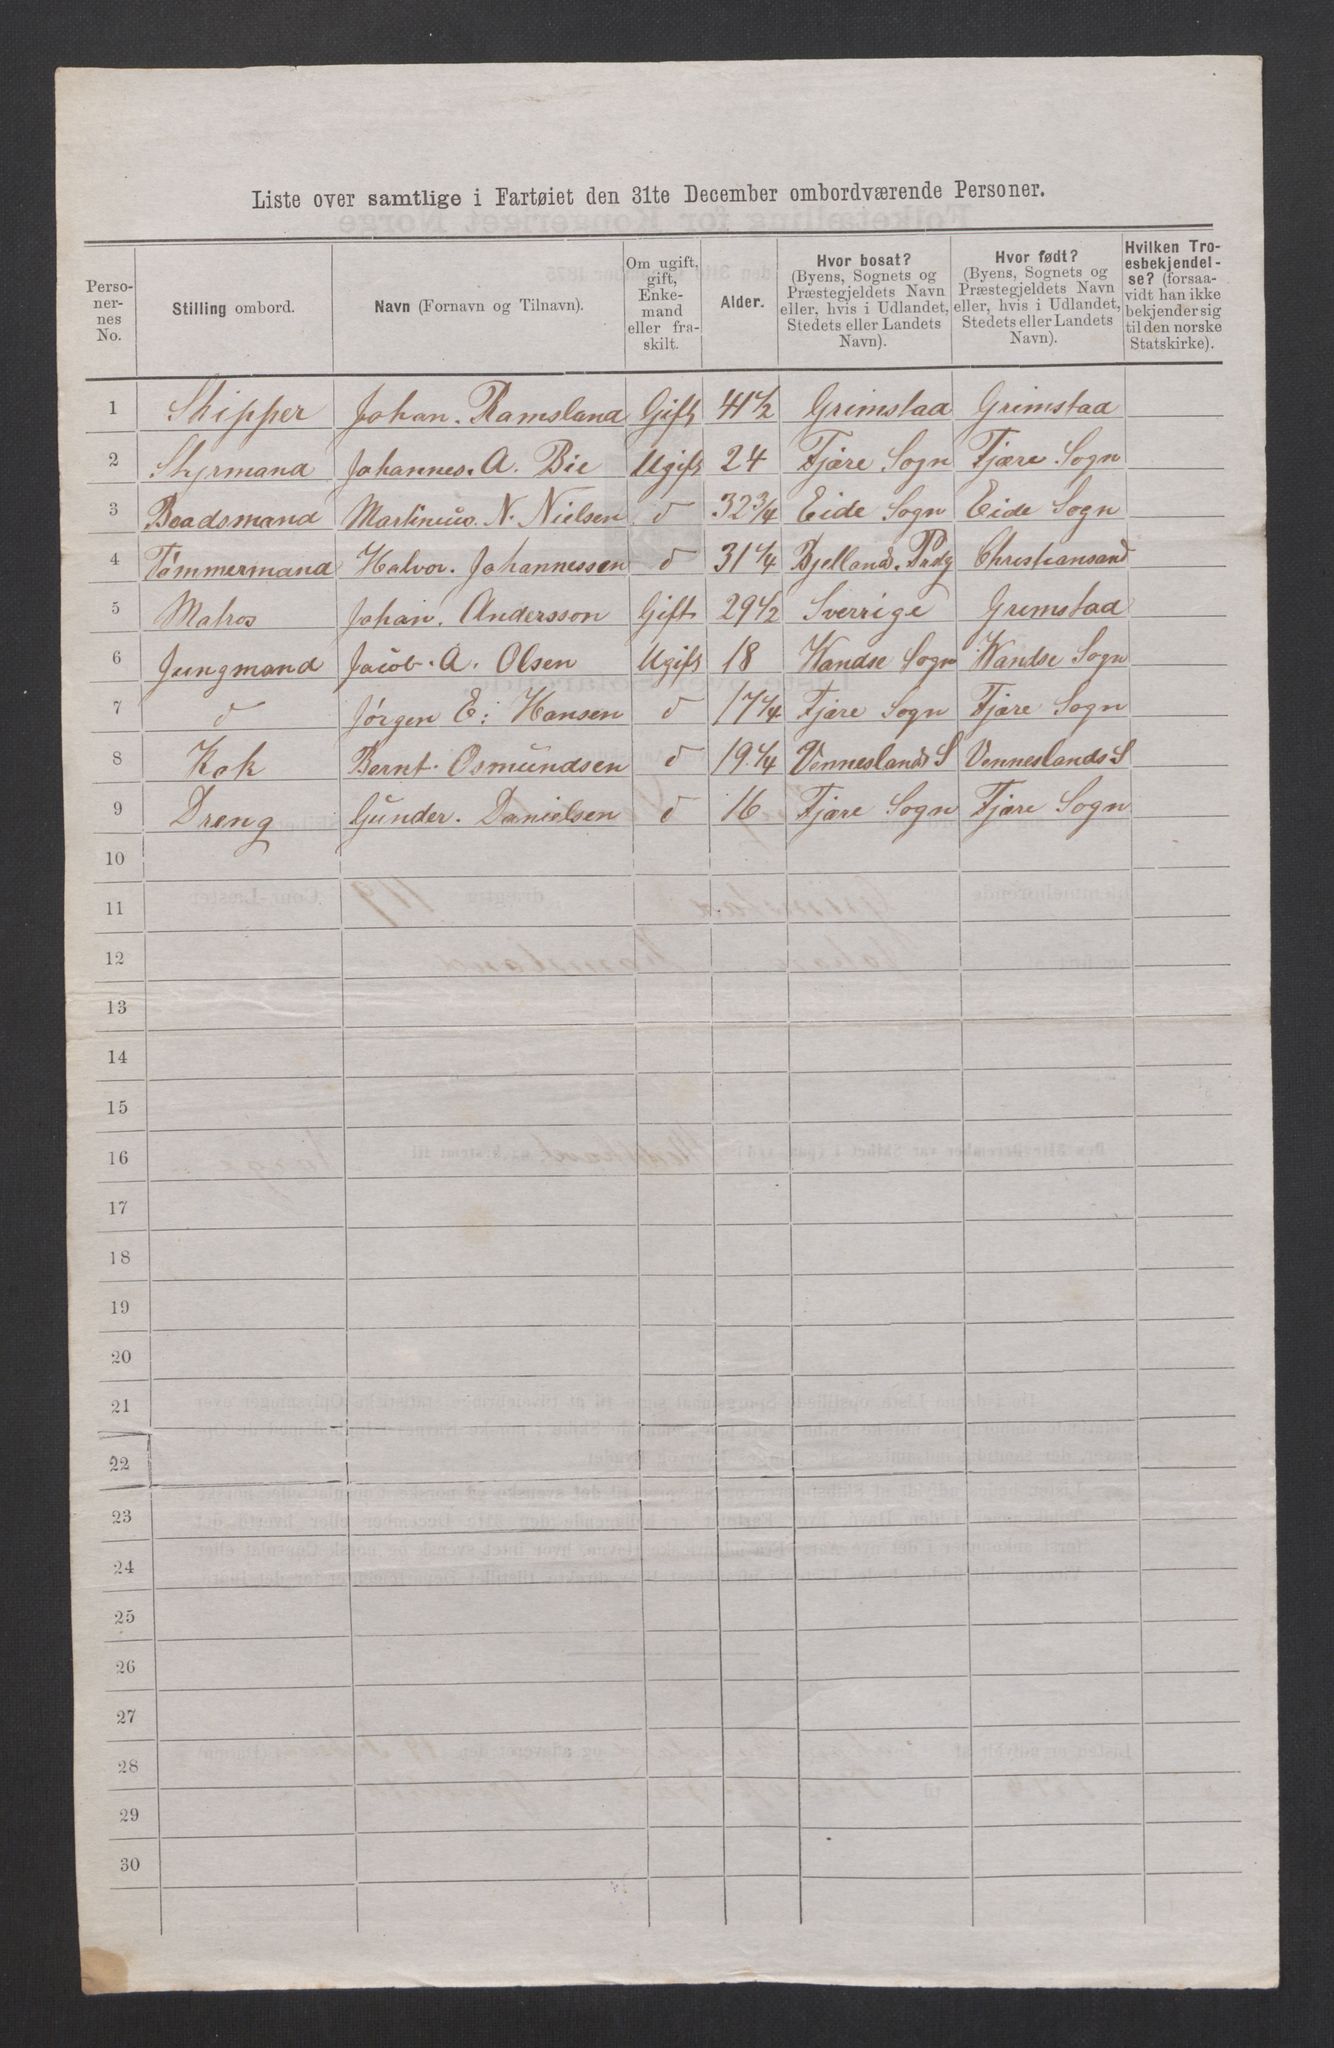 Liste over samtlige i Fartøiet den 31te December ombordværende Personer.
Perso-
ner-
nes
No.
Stilling ombord.
Navn (Fornavn og Tilnavn).
Om ugift,
gift,
Enke-
mand
eller fra-
skilt.
Alder.
Hvor bosat?
(Byens, Sognets og
Præstegjeldets Navn
eller, hvis i Udlandet,
Stedets eller Landets
Navn).
Hvor født?
(Byens, Sognets og
Præstegjeldets Navn
eller, hvis i Udlandet,
Stedets eller Landets
Navn).
Hvilken Tro-
esbekjendel-
se? (forsaa-
vidt han ikke
bekjender sig
til den norske
Statskirke).
1 Skipper Johan. Ramsland Gift 41 1/2 Grimstad Grimstad
2 Styrmand Johannes. A. Bie Ugift 24 Fjære Sogn Fjære Sogn
3 Baadsmand Martinius. N. Nielsen d 32 3/4 Eide Sogn Eide Sogn
4 Tømmermand Halvor. Johannessen d 31 1/4 Bjelland. Prdg Christiansand
5 Matros Johan. Andersson Gift 29 1/2 Sverrige Grimstad
6 Jungmand Jacob. A. Olsen Ugift 18 Wandse Sogn Wandse Sogn
7 d Jørgen E: Hansen d 17 1/4 Fjære Sogn Fjære Sogn
8 Kok Bernt. Osmundsen d 19 1/4 Venneslands S Venneslands S
9 Dreng Gunder. Danielsen d 16 Fjære Sogn Fjære Sogn
10
11
12
13
14
15
16
17
18
19
20
21
22
23
24
25
26
27
28
29
30